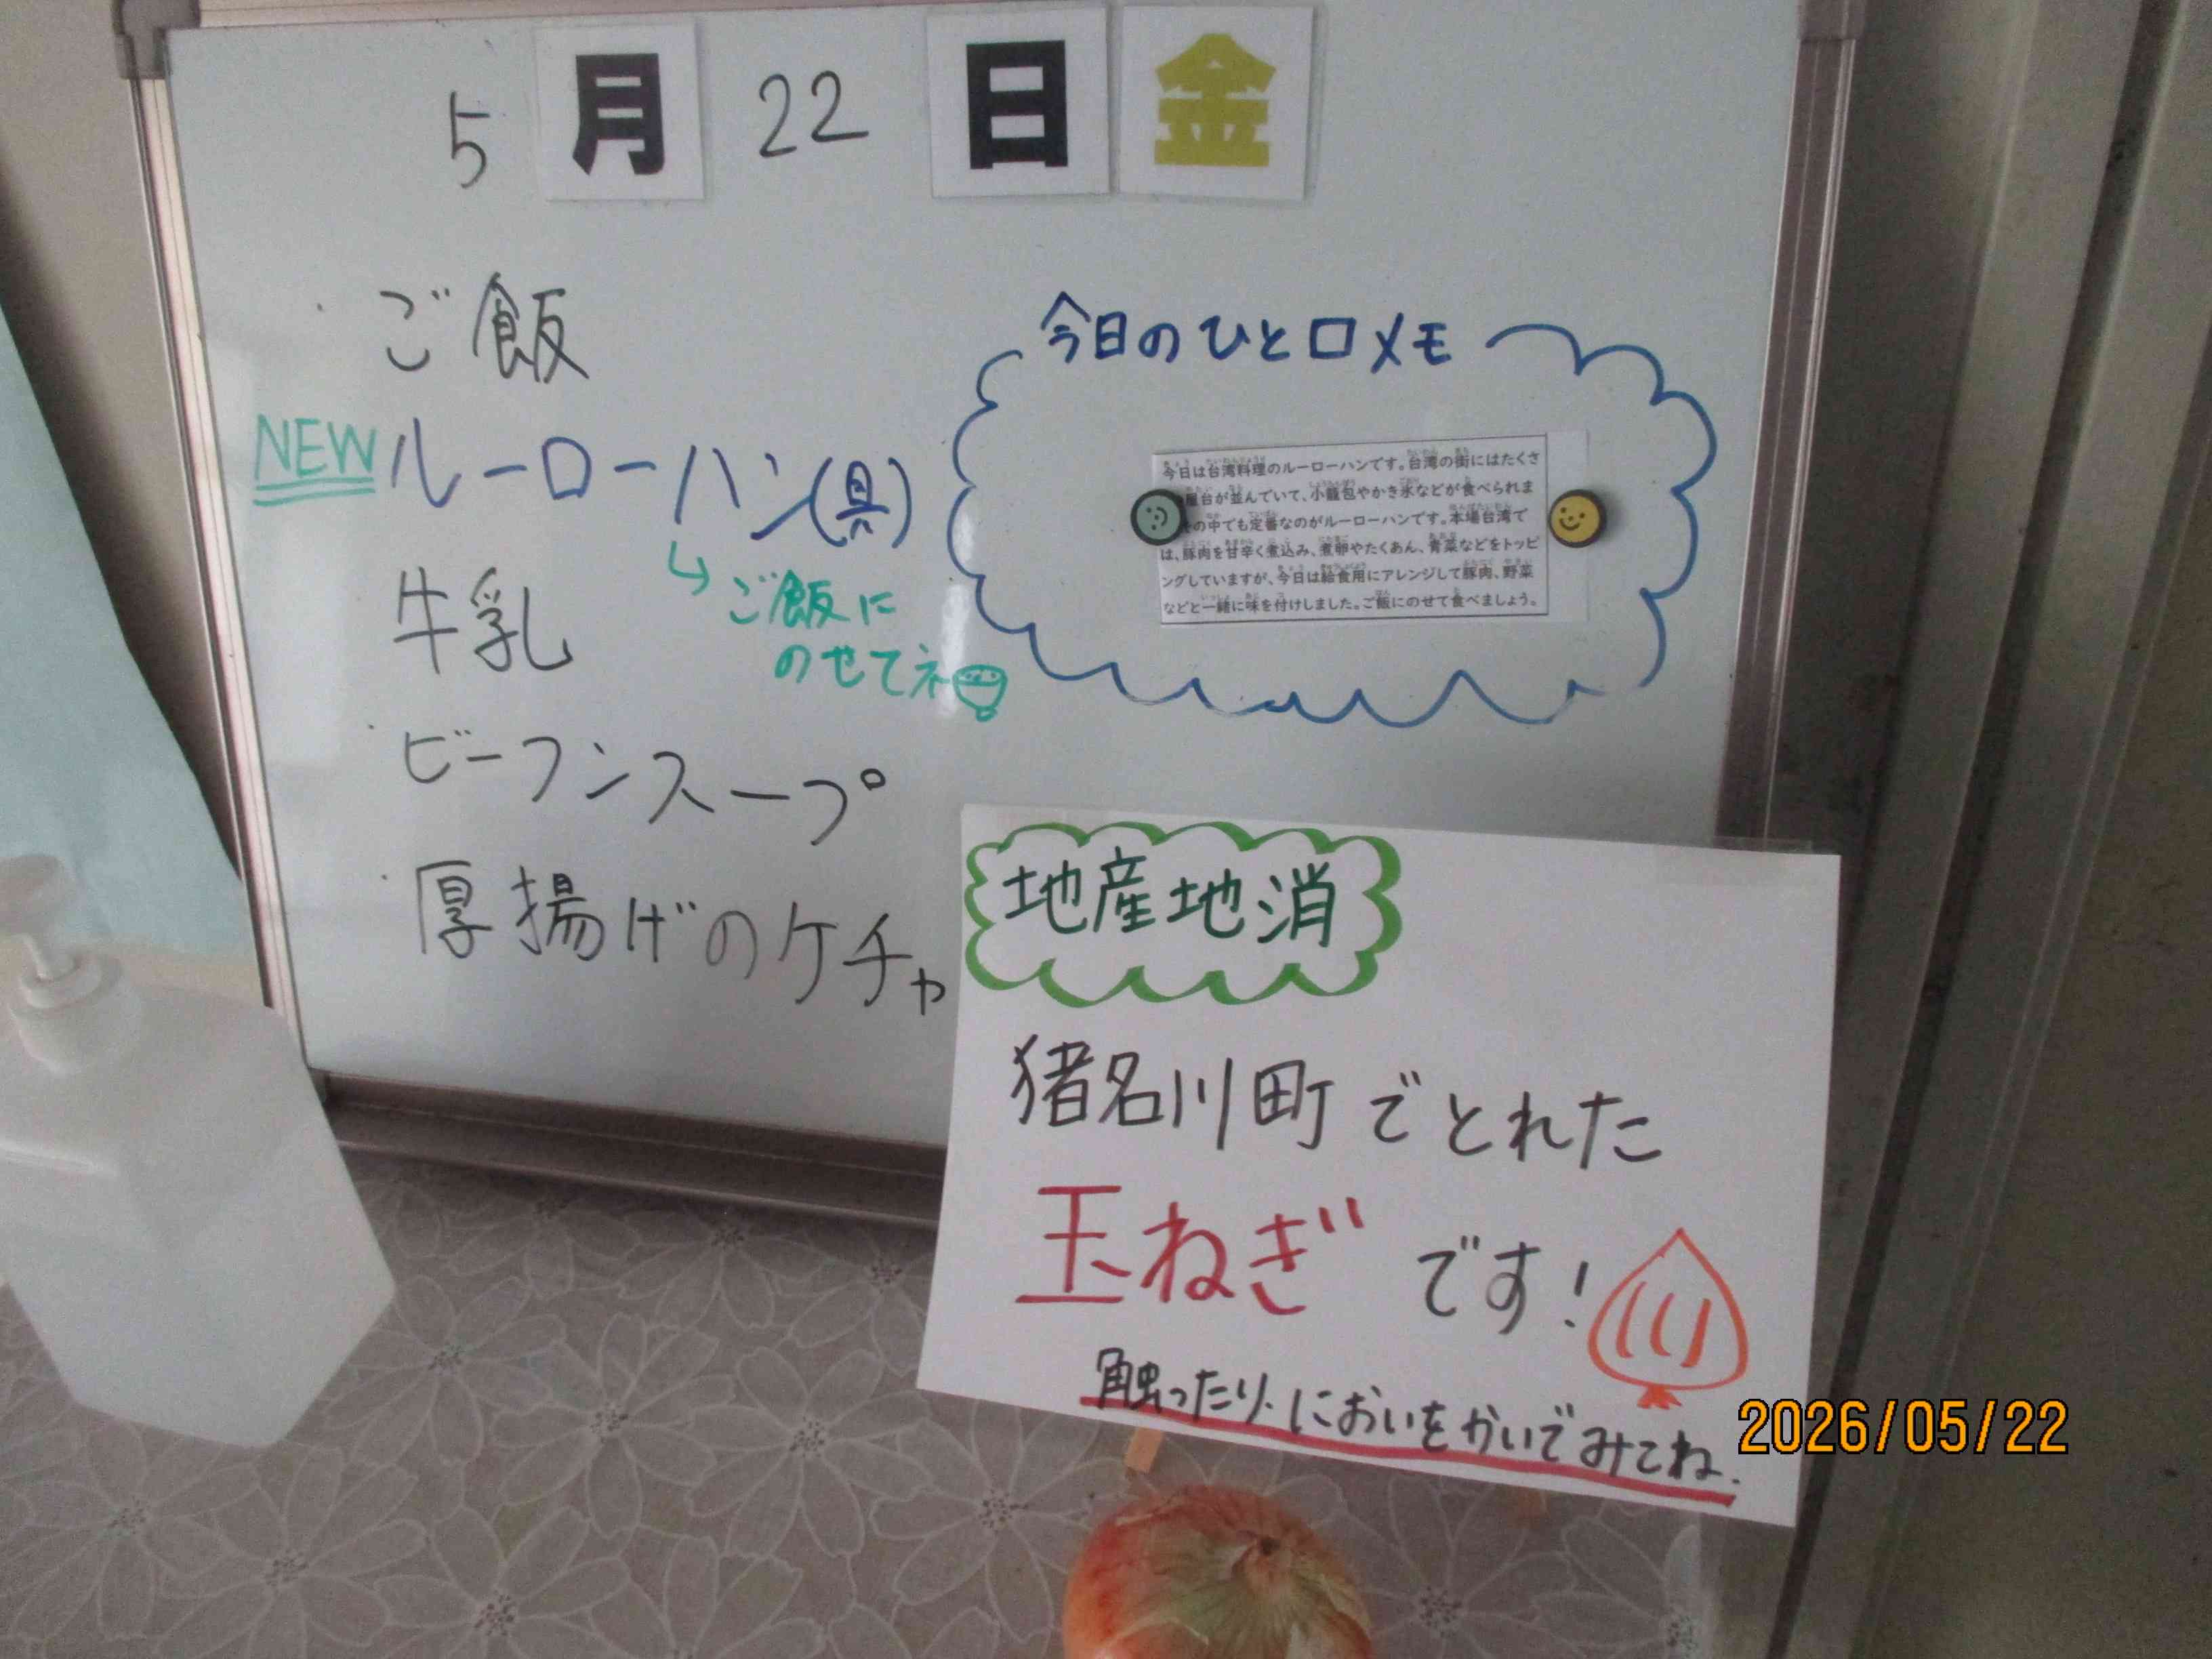 5月22日金
ご飯
NEWルーローハン(具)
ご飯に
のせてネ
牛乳
ビーフンスープ
厚揚げのケチャ
今日のひと口メモ
今日は台湾料理のルーローハンです。台湾の街にはたくさ
屋台が並んでいて、小籠包やかき氷などが食べられま
の中でも定番なのがルーローハンです。本場台湾で
は、豚肉を甘辛く煮込み、煮卵やたくあん、青菜などをトッピ
ングしていますが、今日は給食用にアレンジして豚肉、野菜
などと一緒に味を付けしました。ご飯にのせて食べましょう。
地産地消
猪名川町でとれた
玉ねぎです!
触ったり、においをかいでみてね.
2026/05/22